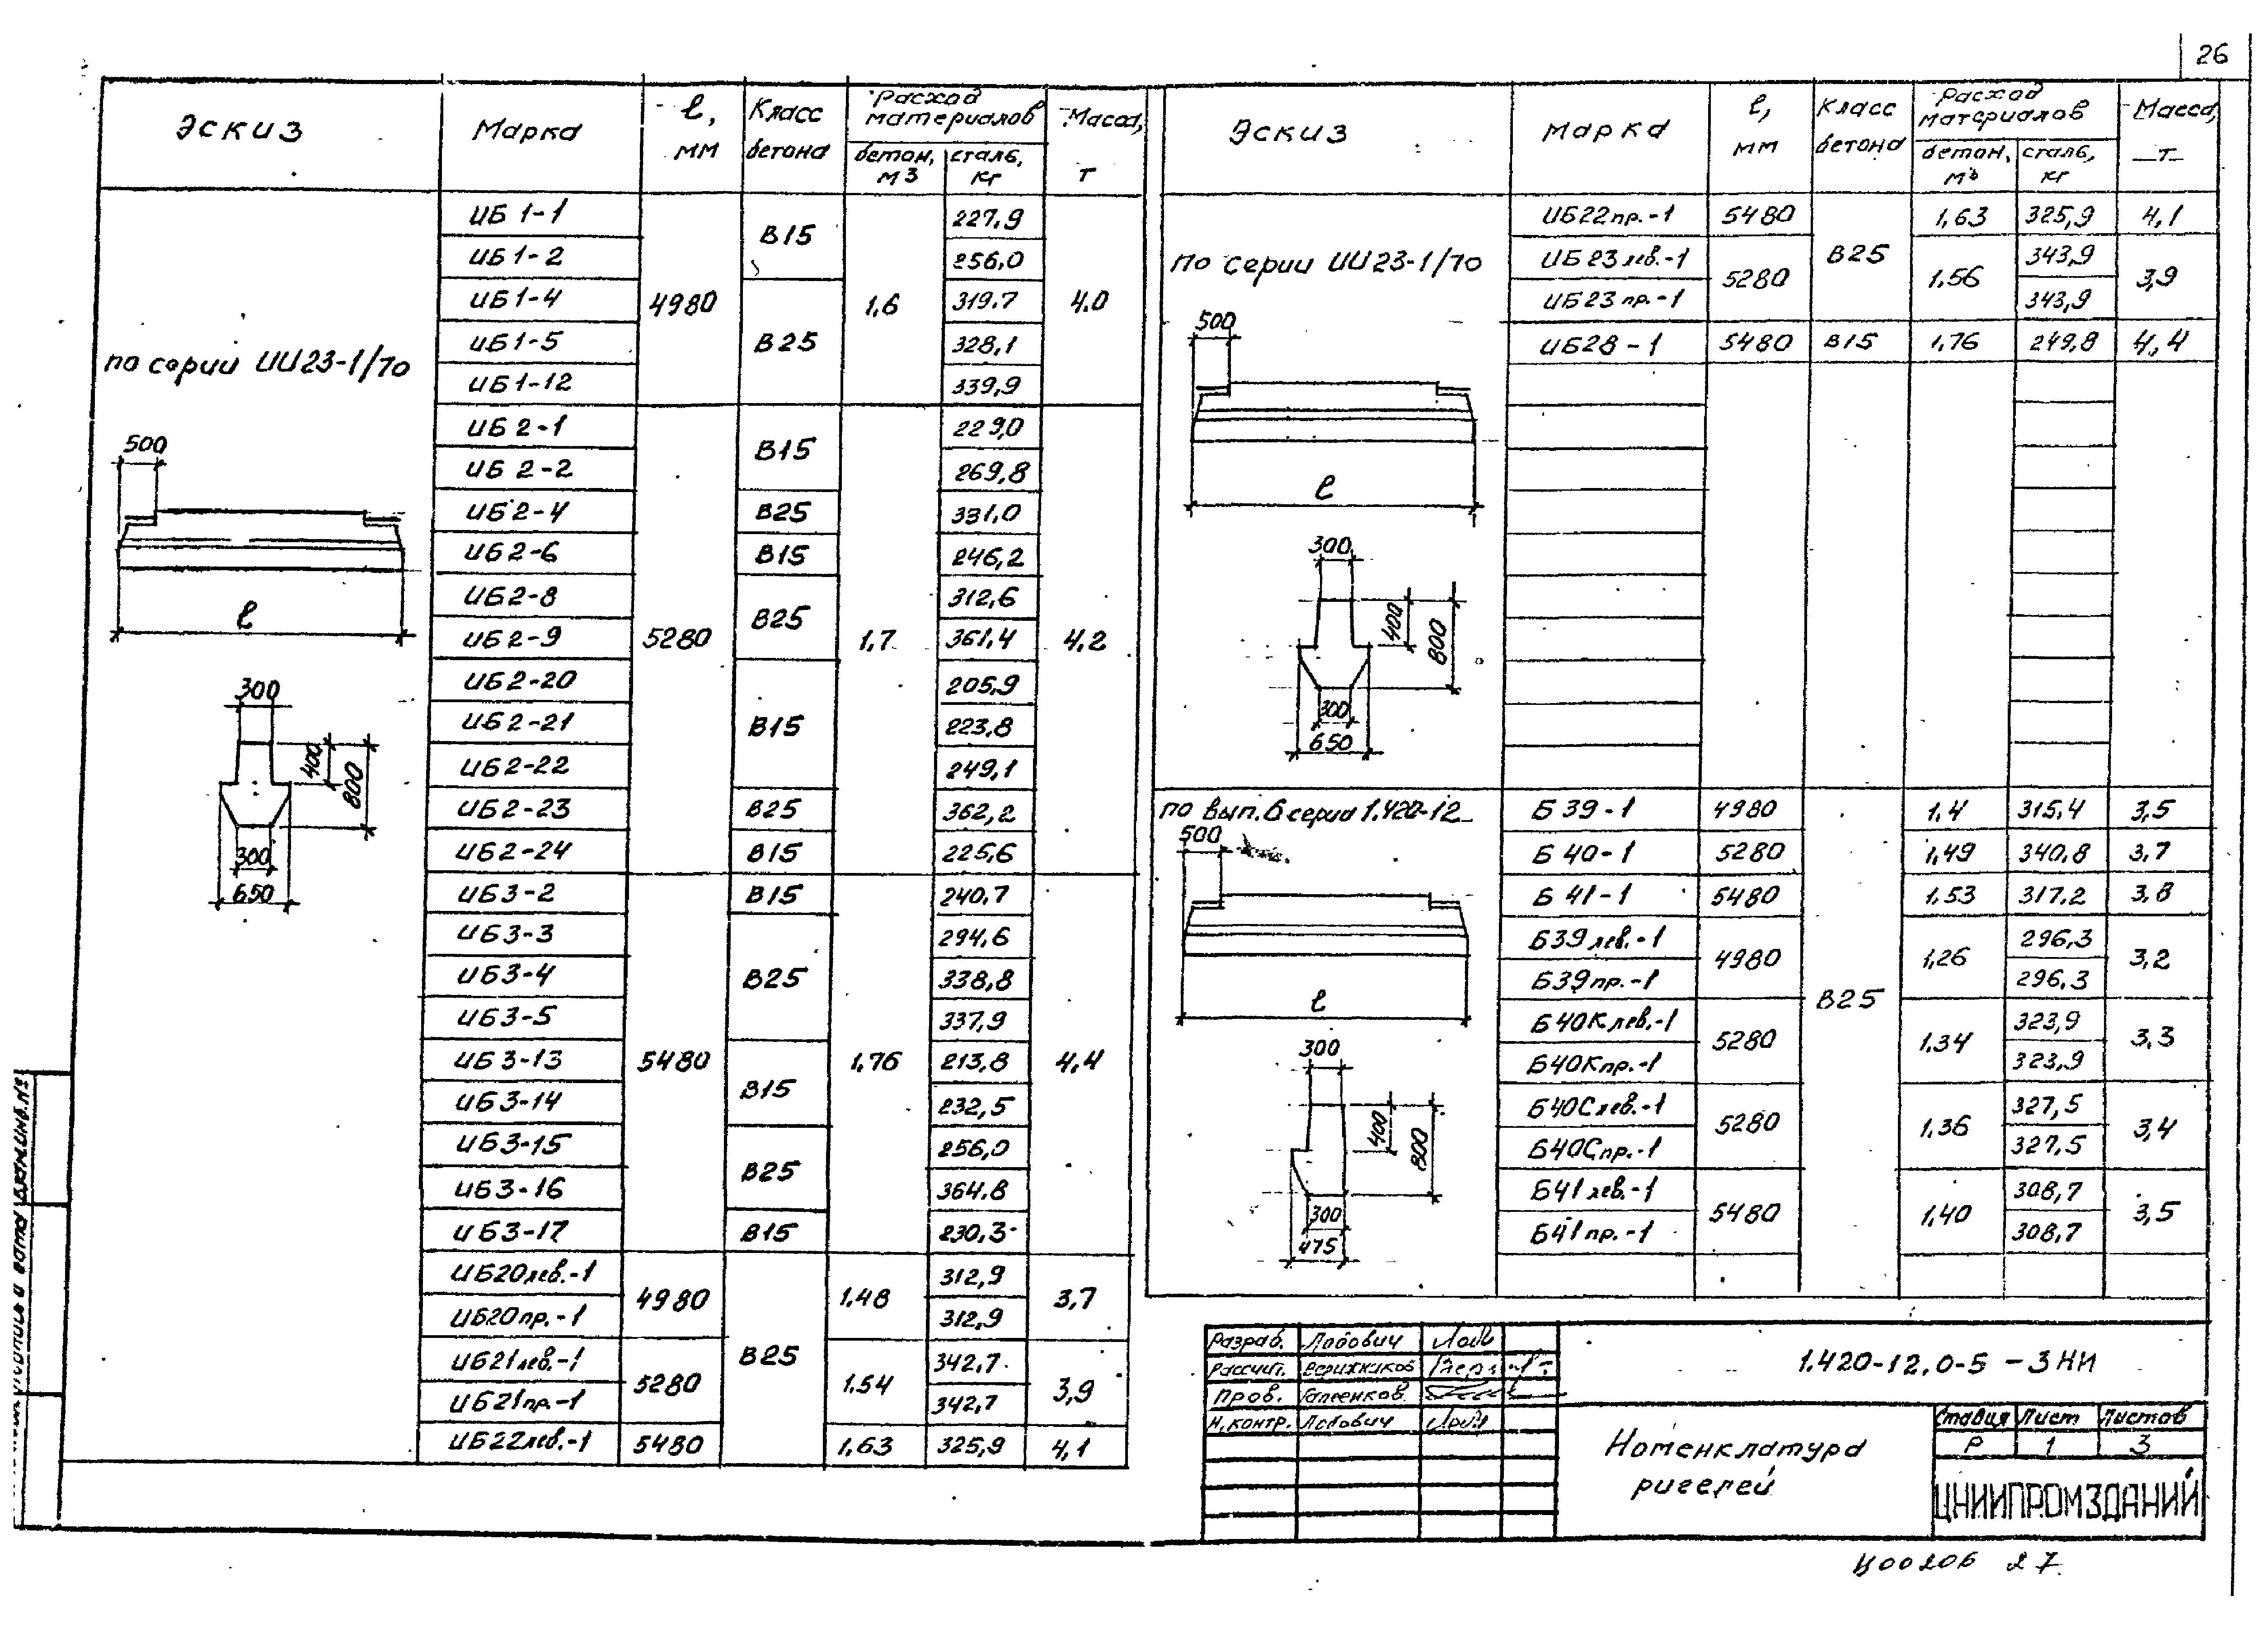 26
Эскиз Марка ℓ, мм Класс бетона Расход материалов Масса, т
бетон, м3 сталь, кг
по серии ИИ23-1/70
500
ℓ
300
400
800
300
650
ИБ 1-1 4980 В15 1,6 227,9 4.0
ИБ 1-2 256,0
ИБ1-4 В25 319.7
ИБ1-5 328,1
ИБ1-12 339,9
ИБ 2-1 5280 В15 1,7 229,0 4,2
ИБ 2-2 269,8
ИБ 2-4 В25 331,0
ИБ2-6 В15 246,2
ИБ2-8 В25 312,6
ИБ2-9 361,4
ИБ2-20 В15 205,9
ИБ2-21 223,8
ИБ2-22 249,1
ИБ2-23 В25 362,2
ИБ2-24 В15 225,6
ИБ3-2 5480 В15 1,76 240,7 4,4
ИБ3-3 В25 294,6
ИБ3-4 338,8
ИБ3-5 337,9
ИБ3-13 В15 213,8
ИБ3-14 232,5
ИБ3-15 В25 256,0
ИБ3-16 364.8
ИБ3-17 В15 230,3
ИБ20лев.-1 4980 В25 1,48 312,9 3,7
ИБ20пр.-1 312,9
ИБ21лев.-1 5280 1.54 342,7 3,9
ИБ21пр.-1 342,7
ИБ22лев.-1 5480 1,63 325,9 4,1
Эскиз Марка ℓ, мм Класс бетона Расход материалов Масса, т
бетон, м3 сталь, кг
по серии ИИ23-1/70
500
ℓ
300
400
800
300
650
ИБ22пр.-1 5480 В25 1,63 325,9 4,1
ИБ23лев.-1 5280 1.56 343,9 3,9
ИБ23пр.-1 343,9
ИБ28-1 5480 В15 1,76 249,8 4,4
по вып.6 серии 1.420-12
500
ℓ
300
400
800
300
475
Б 39-1 4980 В25 1,4 315,4 3,5
Б 40-1 5280 1,49 340,8 3,7
Б 41-1 5480 1,53 317.2 3,8
Б39лев.-1 4980 1,26 296,3 3,2
Б39пр.-1 296,3
Б40Клев.-1 5280 1.34 323,9 3.3
Б40Кпр.-1 323,9
Б40Слев.-1 5280 1.36 327,5 3,4
Б40Спр.-1 327,5
Б41лев.-1 5480 1,40 308,7 3,5
Б41пр.-1 308,7
Разраб. Лобович
Рассчит.
Пров.
Н.контр. Лобович
1.420-12.0-5 - 3НИ
Номенклатура ригелей
Стадия Лист Листов
Р 1 3
ЦНИИПРОМЗДАНИЙ
Ц00206 27